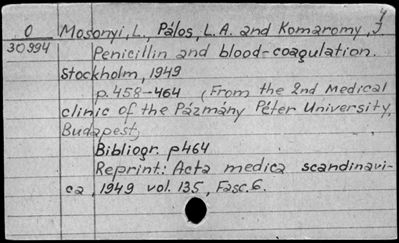 0 Mosonyi, L., Pálos, L.A. and Komaromy, J.
30994 Penicillin and blood-coagulation.
Stockholm, 1949
p.458-464 (From the 2nd Medical
clinic of the Pázmány Péter University,
Budapest)
Bibliogr. p464
Reprint: Acta medica scandinavi-
ca, 1949 vol. 135, Fasc.6.